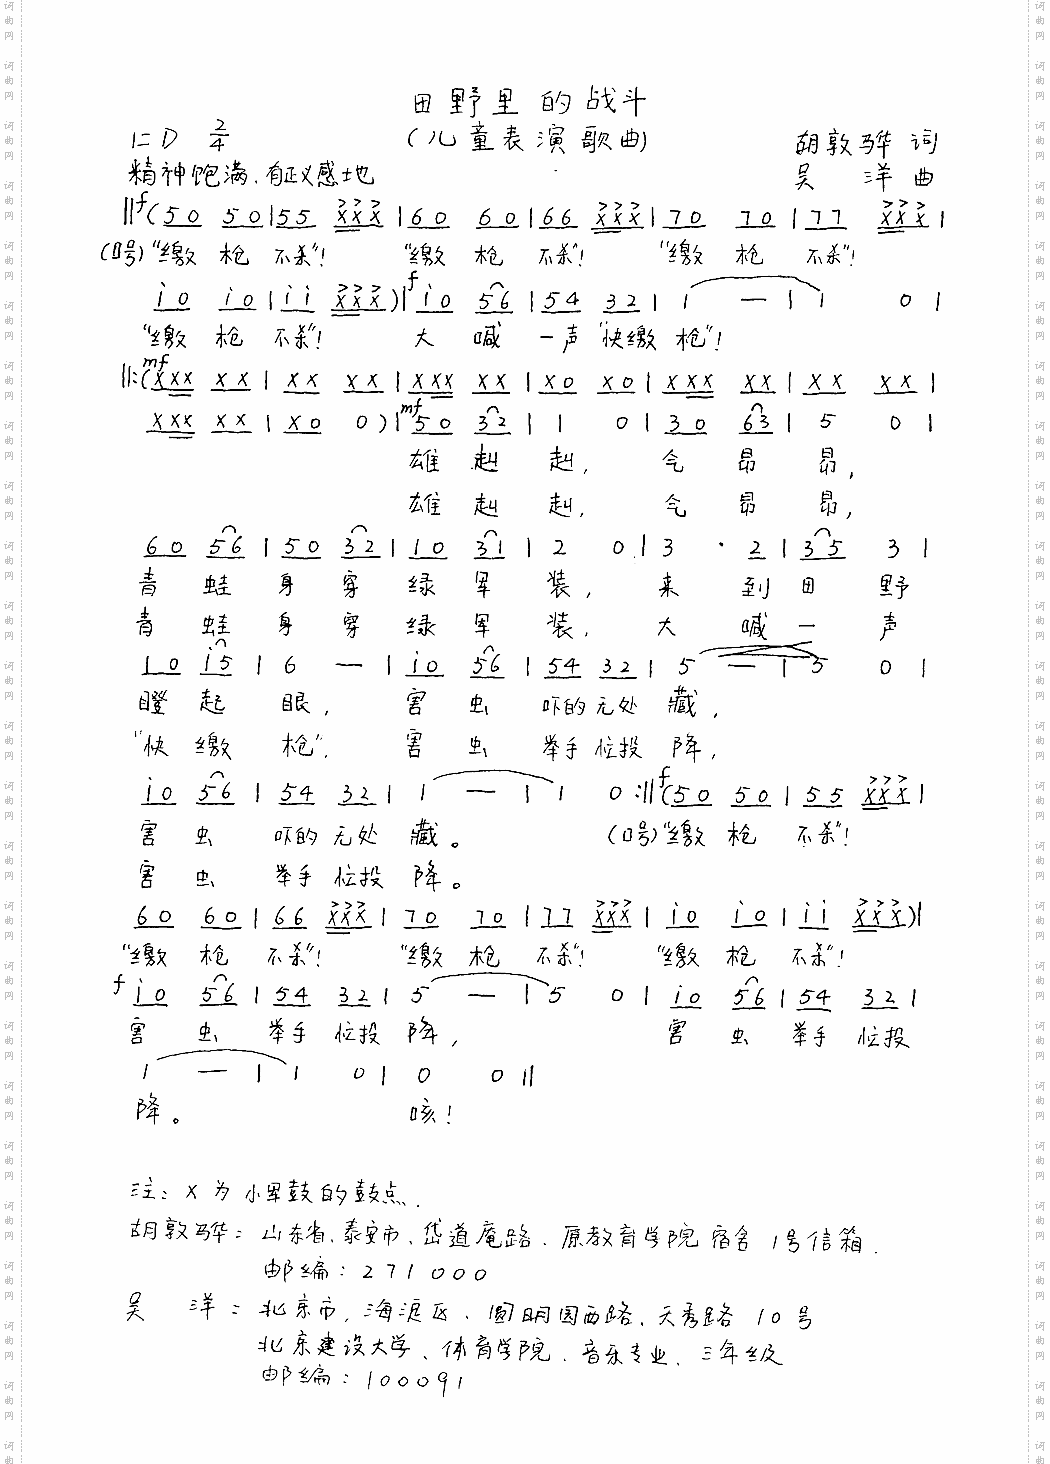 田野里的战斗
1=D 2/4 (儿童表演歌曲) 胡敦骅 词
精神饱满、有正义感地 吴 洋 曲
‖f(5 0 5 0|5 5 XXX|6 0 6 0|6 6 XXX|7 0 7 0|7 7 XXX|
(口号)“缴 枪 不杀”! “缴 枪 不杀”! “缴 枪 不杀”!
i 0 i 0|i i XXX)|f i 0 5 6|5 4 3 2|1 —|1 0|
“缴 枪 不杀”! 大 喊 一声“快缴枪”!
‖:mf(XXX XX|XX XX|XXX XX|X0 X0|XXX XX|XX XX|
XXX XX|X0 0)|mf 5 0 3 2|1 0|3 0 6 3|5 0|
雄 赳 赳, 气 昂 昂,
雄 赳 赳, 气 昂 昂,
6 0 5 6|5 0 3 2|1 0 3 1|2 0|3 · 2|3 5 3|
青 蛙 身 穿 绿 军 装, 来 到 田 野
青 蛙 身 穿 绿 军 装, 大 喊 一 声
1 0 i 5|6 —|i 0 5 6|5 4 3 2|5 —|5 0|
瞪 起 眼, 害 虫 吓的无处 藏,
“快 缴 枪”, 害 虫 举手 投 降,
i 0 5 6|5 4 3 2|1 —|1 0:‖f(5 0 5 0|5 5 XXX|
害 虫 吓的无处 藏。 (口号)“缴 枪 不杀”!
害 虫 举手 投 降。
6 0 6 0|6 6 XXX|7 0 7 0|7 7 XXX|i 0 i 0|i i XXX)|
“缴 枪 不杀”! “缴 枪 不杀”! “缴 枪 不杀”!
f i 0 5 6|5 4 3 2|5 —|5 0|i 0 5 6|5 4 3 2|
害 虫 举手 投 降, 害 虫 举手 投
1 —|1 0|0 0‖
降。 咳!
注: X 为 小军鼓的鼓点.
胡敦骅: 山东省、泰安市、岱道庵路、原教育学院宿舍 1号信箱.
邮编: 271000
吴 洋: 北京市, 海淀区、圆明园西路、天秀路 10号
北京建设大学、体育学院、音乐专业、三年级
邮编: 100091
词曲网